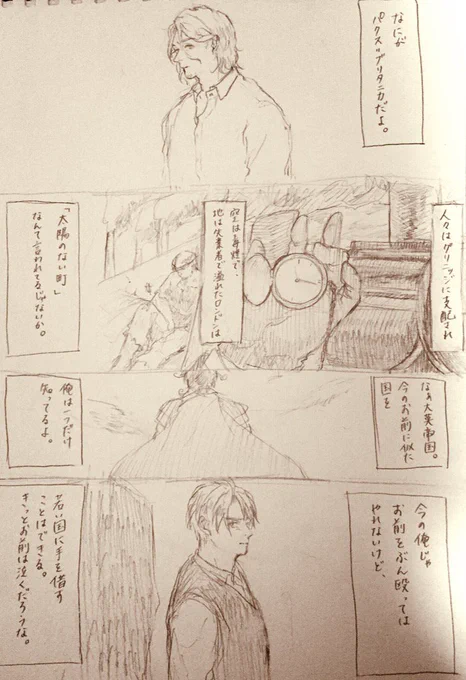 なにが
パクス＝ブリタニカだよ。
人々はグリニッジに支配され
空は毒煙で、
地は失業者で溢れたロンドンは
「太陽のない町」
なんて言われてるじゃないか。
なぁ大英帝国。
今のお前に似た
国を
俺は一つだけ
知ってるよ。
今の俺じゃ
お前をぶん殴っては
やれないけど、
若い国に手を借す
ことはできる。
きっとお前は泣くだろうな。